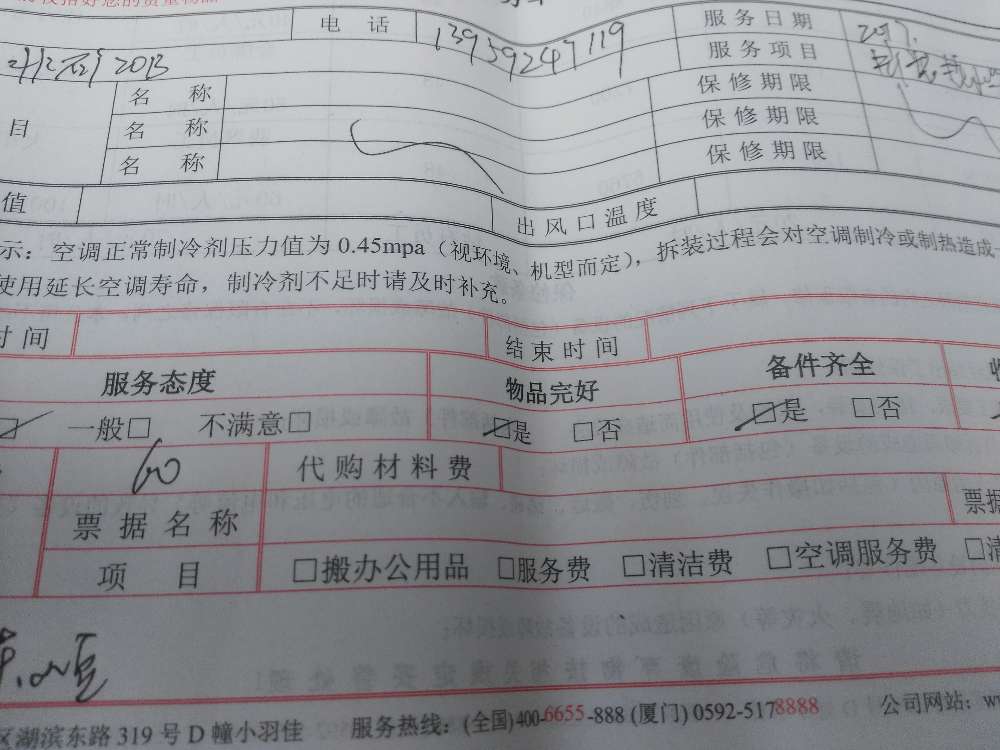 电 话 13959247119 服务日期
2013 服务项目
名 称 保修期限
目 名 称 保修期限
名 称 保修期限
值 出风口温度
示：空调正常制冷剂压力值为 0.45mpa（视环境、机型而定），拆装过程会对空调制冷或制热造成
使用延长空调寿命，制冷剂不足时请及时补充。
时间 结束时间
服务态度 物品完好 备件齐全
一般□ 不满意□ □是 □否 □是 □否
60 代购材料费
票据名称 票据
项 目 □搬办公用品 □服务费 □清洁费 □空调服务费 □清
区湖滨东路 319 号 D 幢小羽佳 服务热线：(全国)400-6655-888 (厦门) 0592-5178888 公司网站：